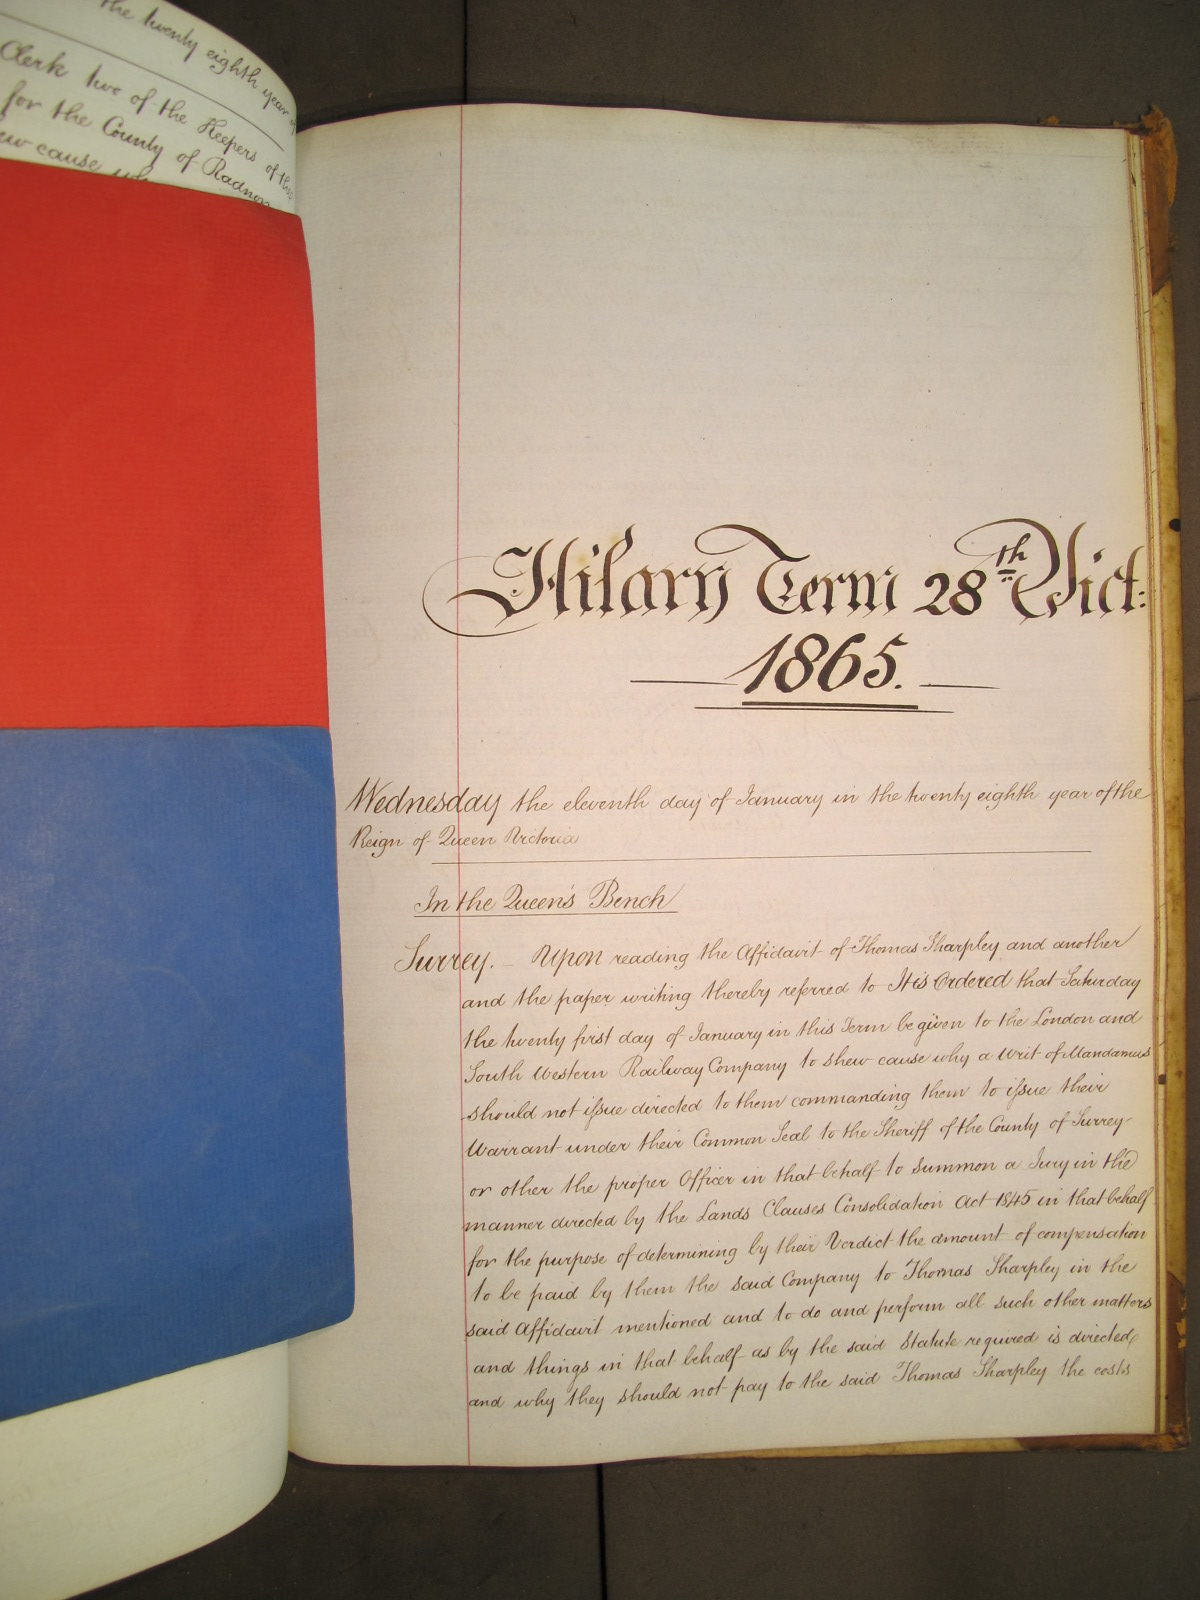 the twenty eighth year of
Clerk two of the Keepers of the
for the County of Radnor
ew cause
Hilary Term 28th Vict:
1865.
Wednesday the eleventh day of January in the twenty eighth year of the
Reign of Queen Victoria
In the Queen's Bench
Surrey. Upon reading the Affidavit of Thomas Sharpley and another
and the paper writing thereby referred to It is Ordered that Saturday
the twenty first day of January in this Term be given to the London and
South Western Railway Company to shew cause why a Writ of Mandamus
should not issue directed to them commanding them to issue their
Warrant under their Common Seal to the Sheriff of the County of Surrey
or other the proper Officer in that behalf to summon a Jury in the
manner directed by the Lands Clauses Consolidation Act 1845 in that behalf
for the purpose of determining by their Verdict the amount of compensation
to be paid by them the said Company to Thomas Sharpley in the
said Affidavit mentioned and to do and perform all such other matters
and things in that behalf as by the said Statute required is directed
and why they should not pay to the said Thomas Sharpley the costs